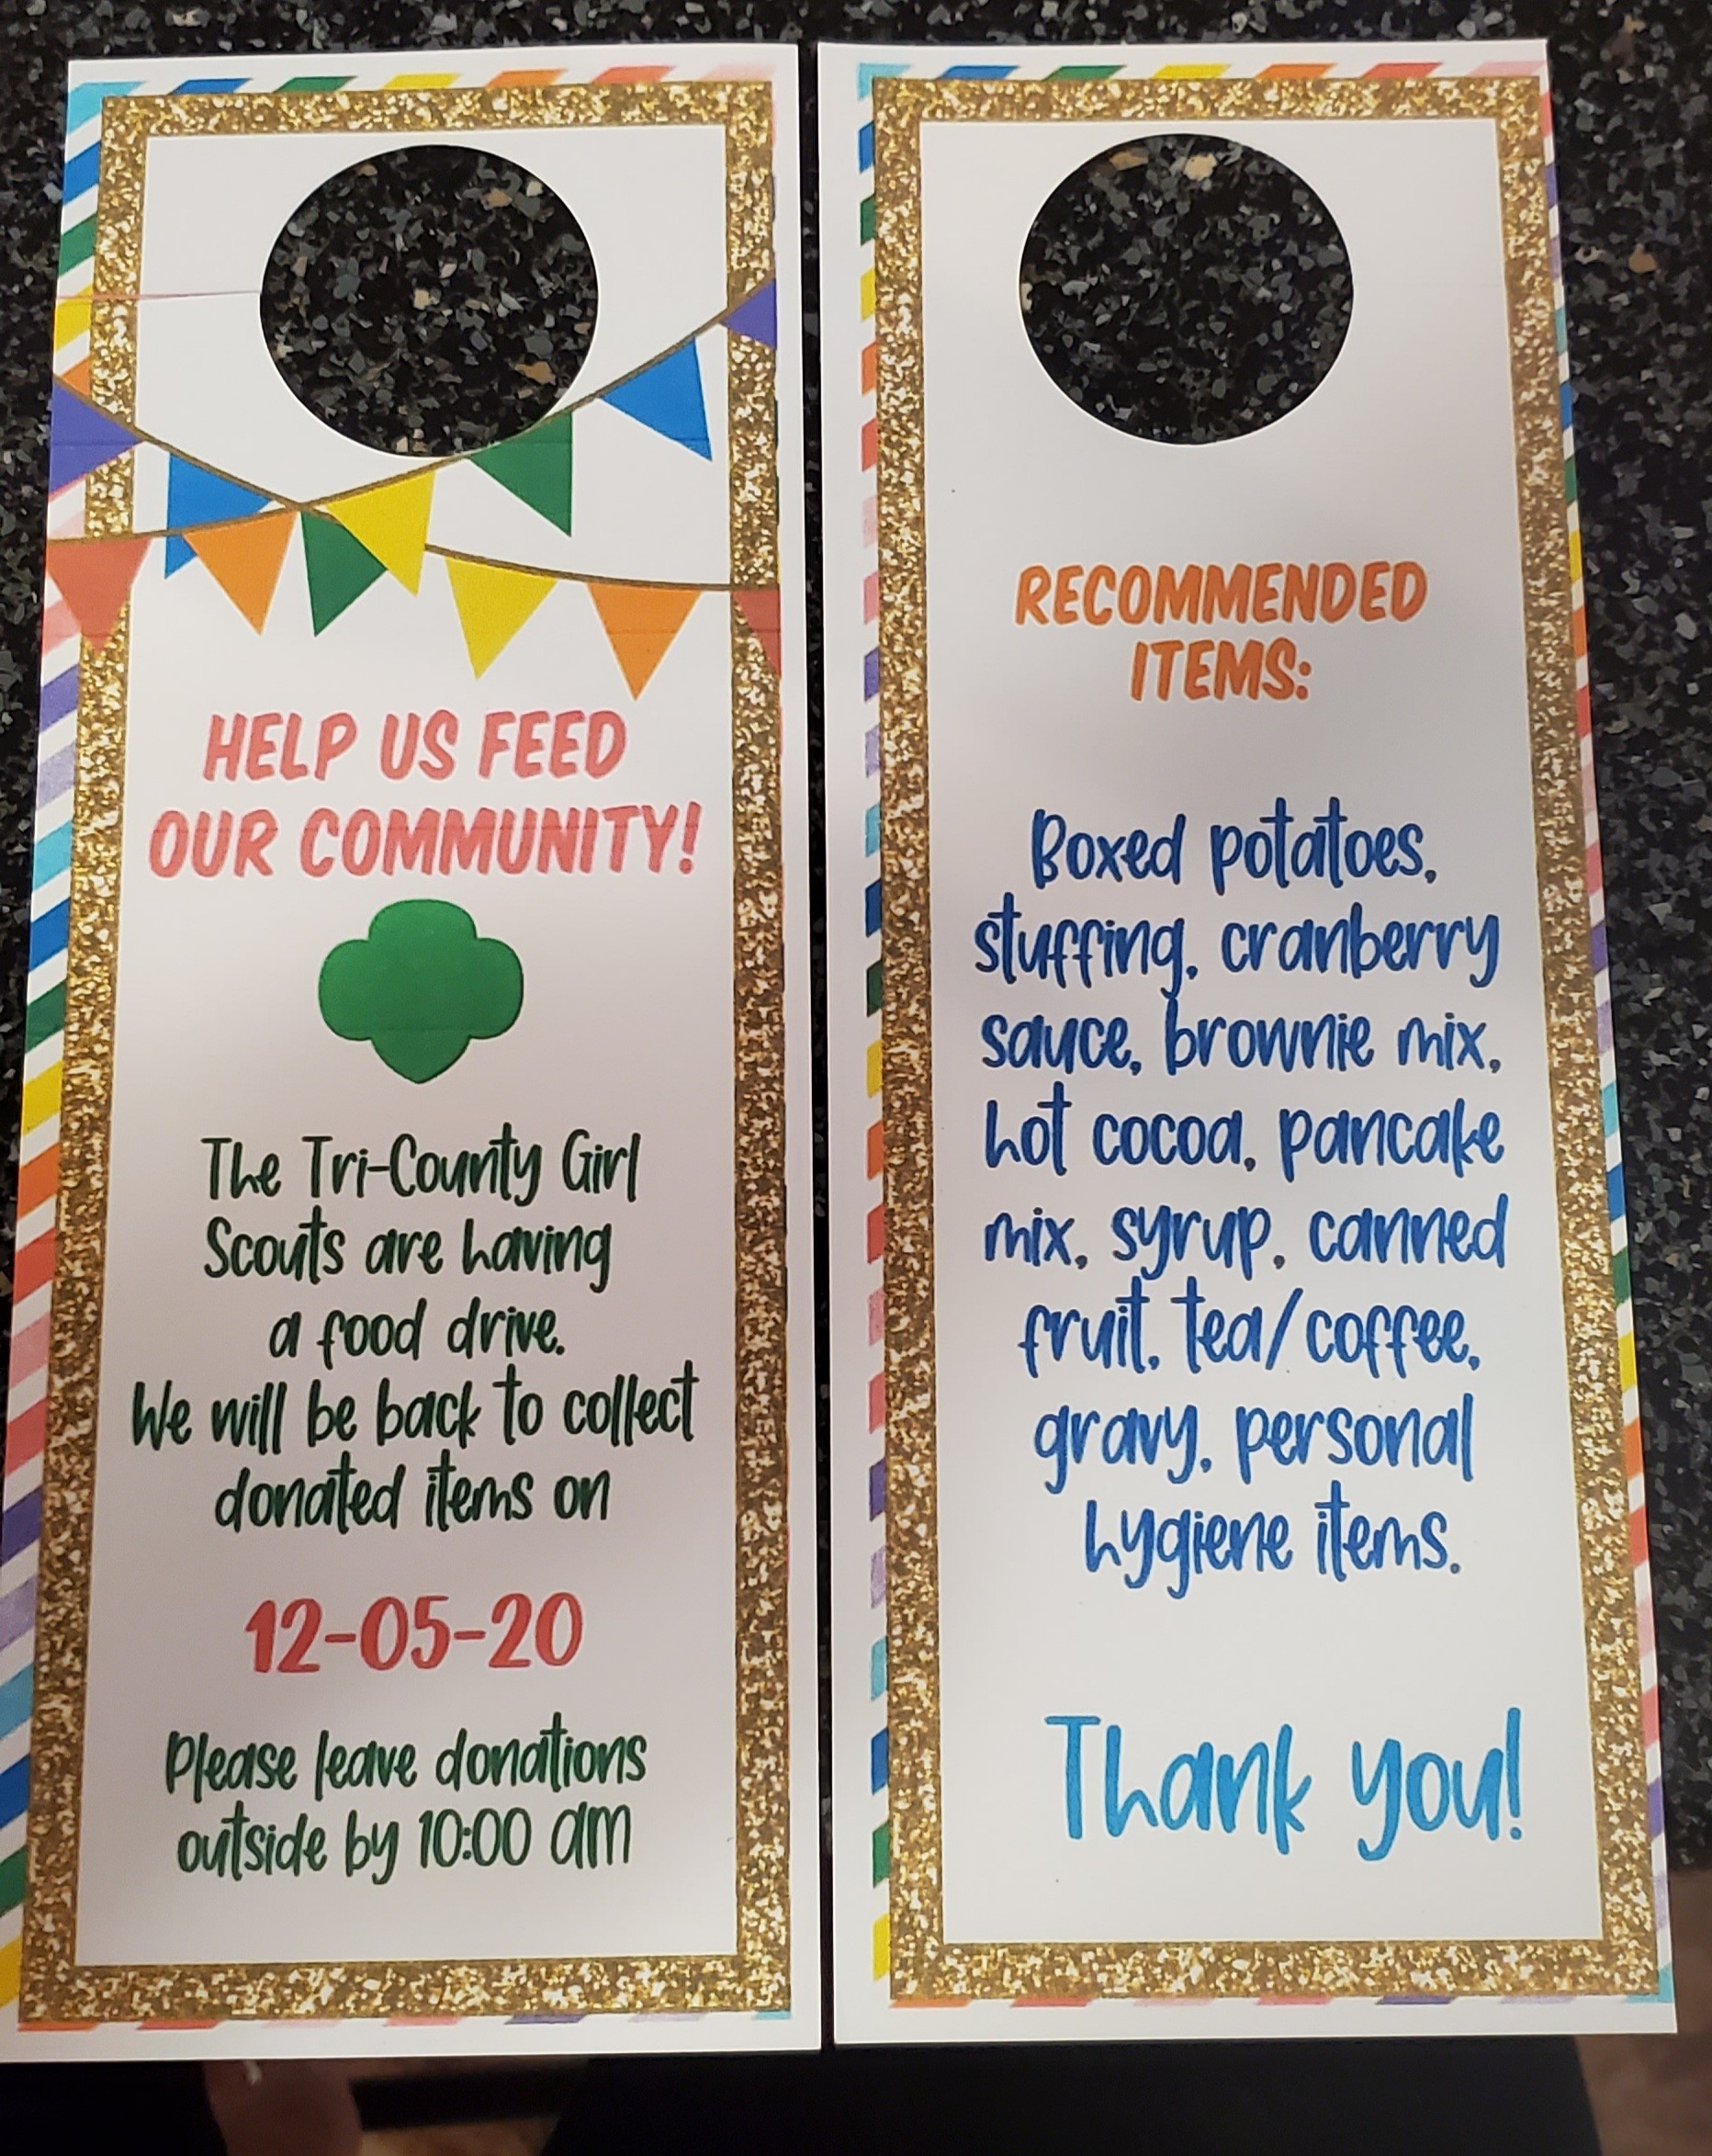 HELP US FEED
OUR COMMUNITY!
The Tri-County Girl
Scouts are having
a food drive.
We will be back to collect
donated items on
12-05-20
Please leave donations
outside by 10:00 am
RECOMMENDED
ITEMS:
Boxed potatoes,
stuffing, cranberry
sauce, brownie mix,
hot cocoa, pancake
mix, syrup, canned
fruit, tea/coffee,
gravy, personal
hygiene items.
Thank you!